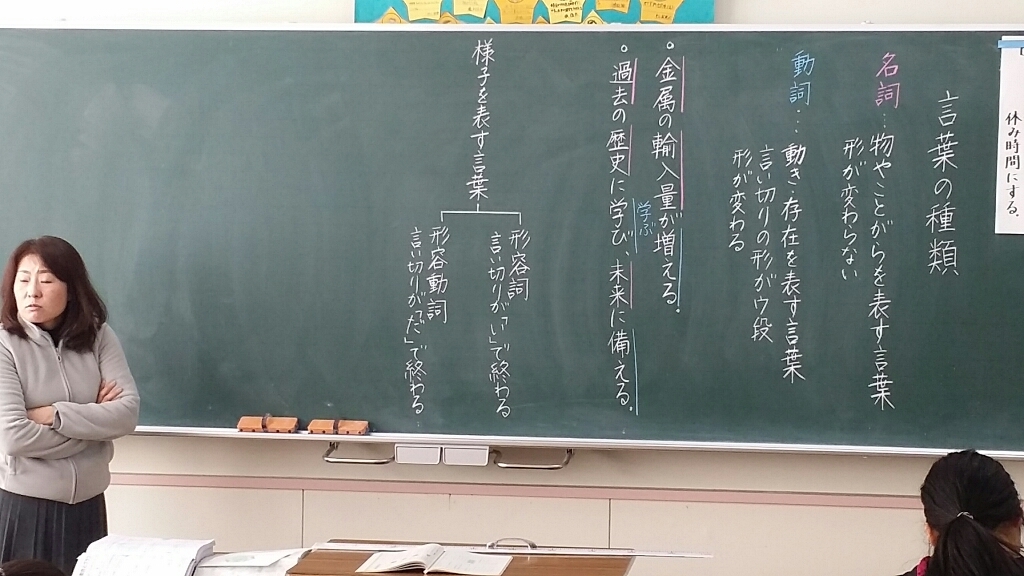 休み時間にする。
言葉の種類
名詞…物やことがらを表す言葉
形が変わらない
動詞…動き・存在を表す言葉
言い切りの形がウ段
形が変わる
。金属の輸入量が増える。
学ぶ
。過去の歴史に学び、未来に備える。
様子を表す言葉
形容詞
言い切りが「い」で終わる
形容動詞
言い切りが「だ」で終わる